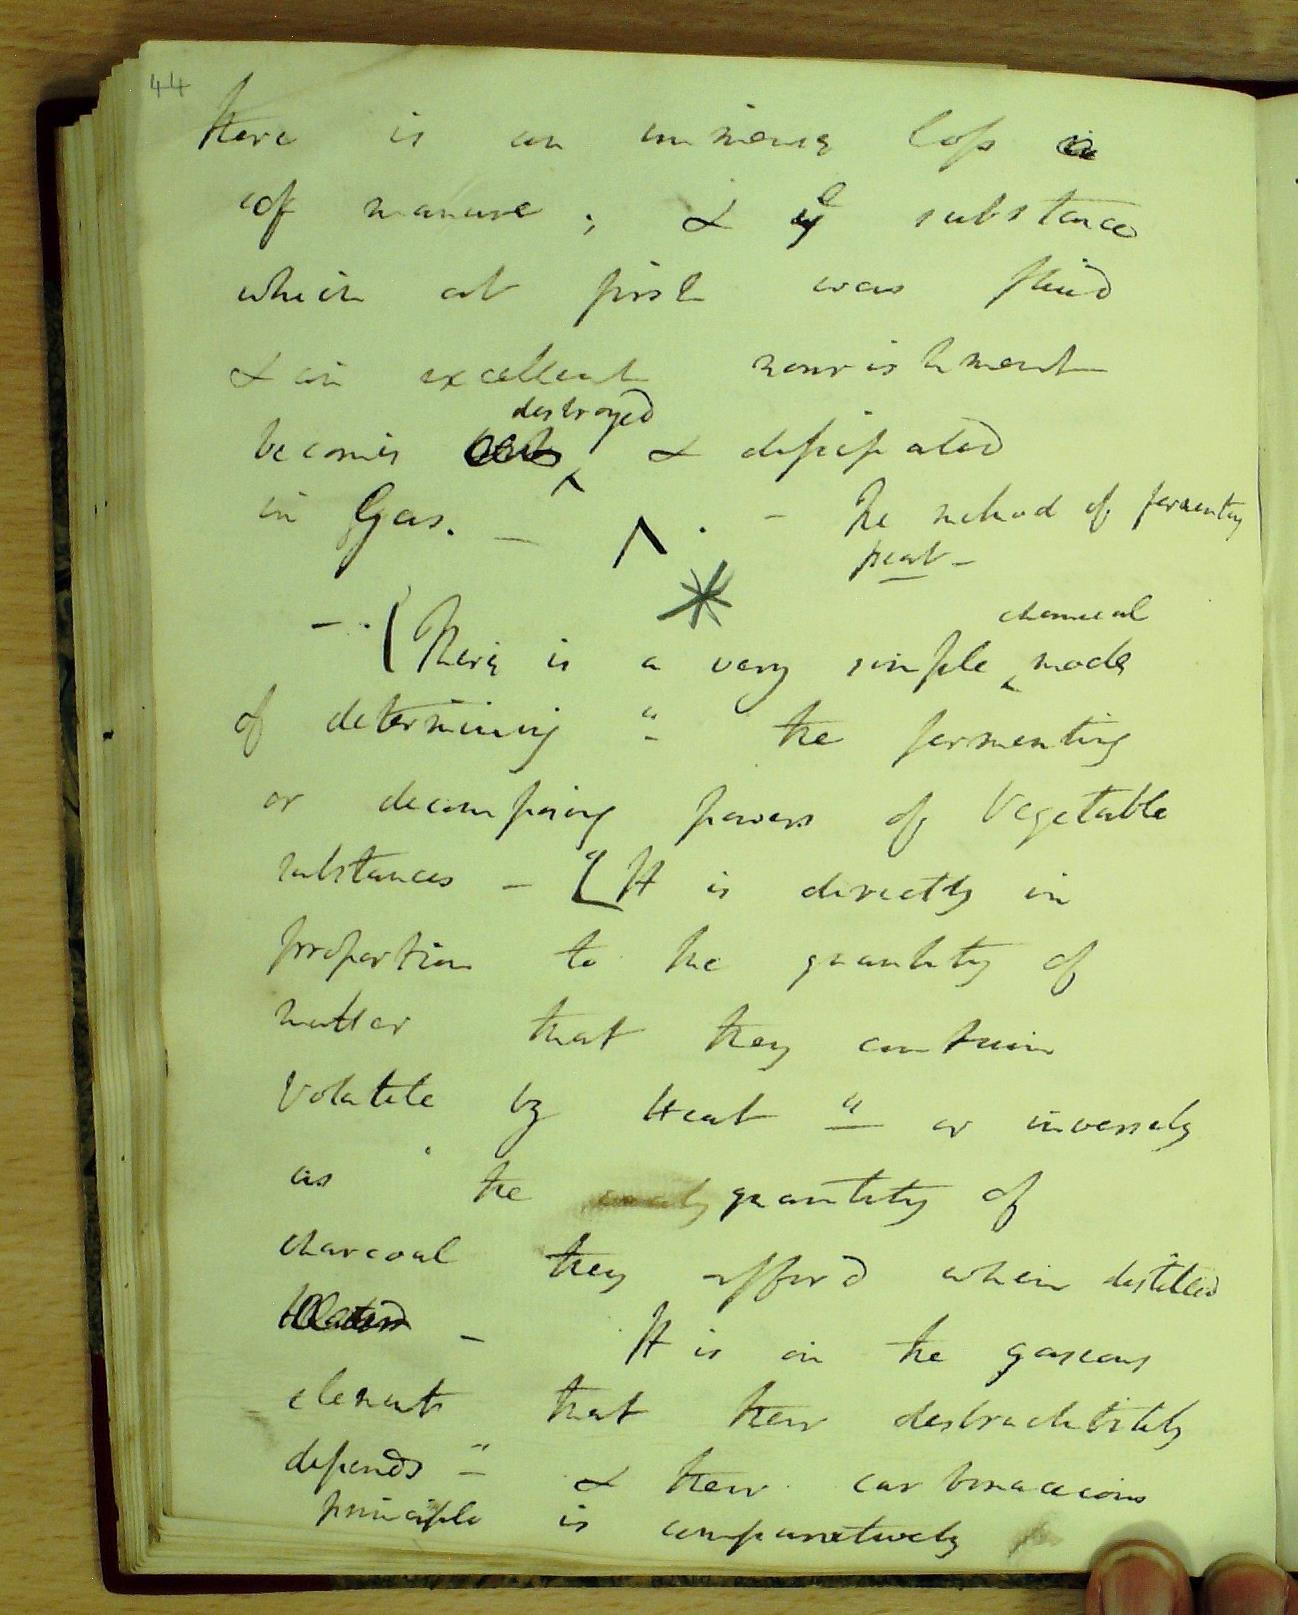 44
there is an immense loss
of manure ; & ye substance
which at first was fluid
& an excellent nourishment
destroyed
becomes & dissipated
in Gas. — The method of fermenting
peat —
chemical
— . (There is a very simple mode
of determining " the fermenting
or decomposing powers of Vegetable
substances — [It is directly in
proportion to the quantity of
matter that they contain
Volatile by Heat " or inversely
as the quantity of
charcoal they afford when distilled
— It is on the gaseous
elements that their destructibility
depends " & their carbonaceous
principle is comparatively